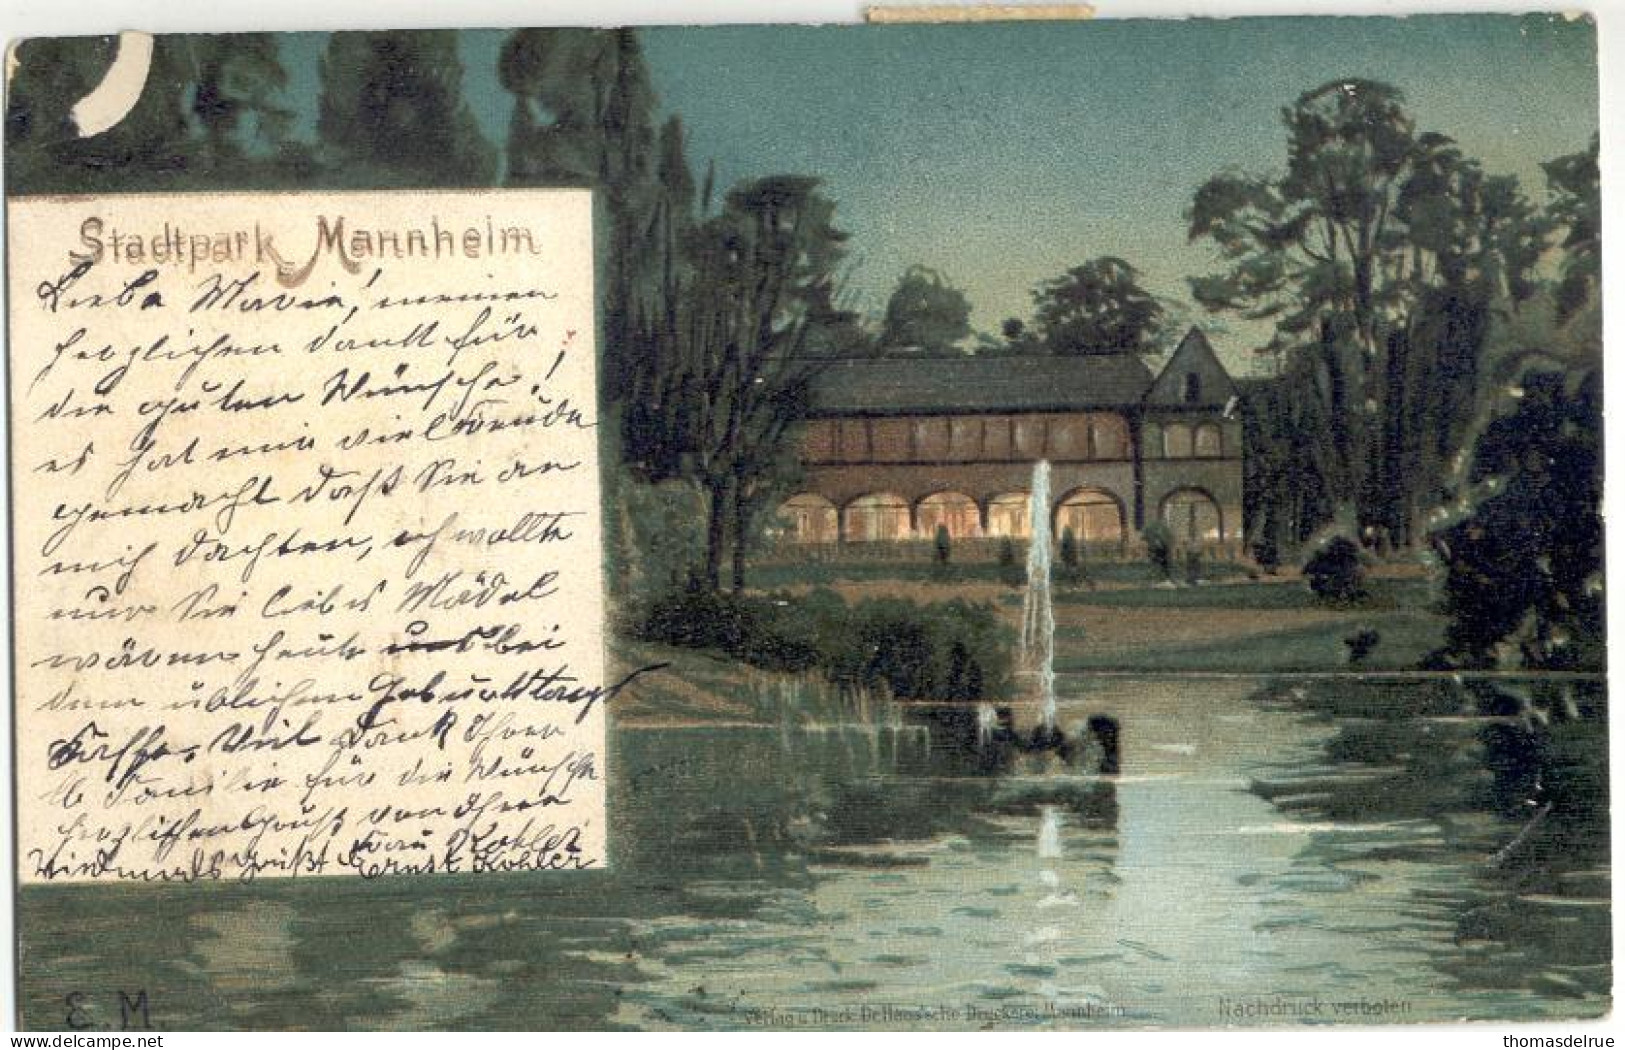 Stadtpark Mannheim
Liebe Marie! meinen
herzlichen Dank für
die guten Wünsche!
es hat mir viel Freude
gemacht daß Sie an
mich dachten, ich wollte
nur Sie liebes Mädel
wären heute bei
dem üblichen Geburtstags
Kaffee. Viel Dank Ihrer
lb Familie für die Wünsche
herzlichen Gruß von Ihrer
Frau Kohler
Vielmals grüßt Ernst Kohler
E. M.
Verlag u Druck Dr. Haas'sche Druckerei Mannheim
Nachdruck verboten
thomasdelrue